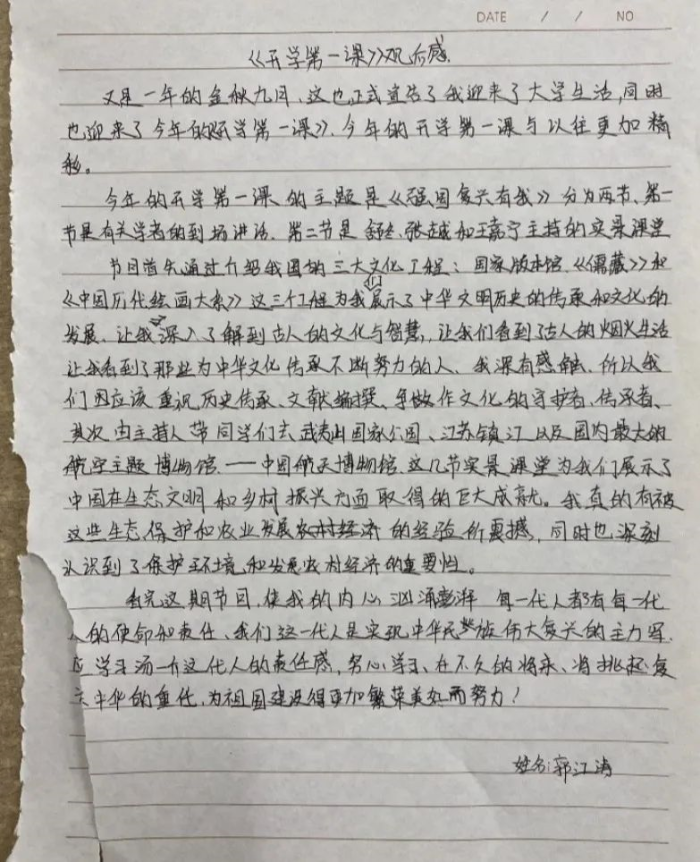 DATE / / NO
《开学第一课》观后感
又是一年的金秋九月,这也正式宣告了我迎来了大学生活,同时
也迎来了今年的《开学第一课》.今年的开学第一课与以往更加精
彩。
今年的开学第一课的主题是《强国复兴有我》分为两节、第一
节是有关学者的到场讲话.第二节是 张越和王嘉宁主持的实景课堂
节目首先通过介绍我国的三大文化工程:国家版本馆.《儒藏》和
《中国历代绘画大系》这三个工程为我们展示了中华文明历史的传承和文化的
发展、让我深入了解到古人的文化与智慧,让我们看到了古人的烟火生活
让我看到了那些为中华文化传承不断努力的人、我深有感触.所以我
们因应该重视历史传承、文献编撰、争做作文化的守护者、传承者、
其次由主持人带同学们去武夷山国家公园、江苏镇江以及国内最大的
航空主题博物馆.——中国航天博物馆.这几节实景课堂为我们展示了
中国在生态文明和乡村振兴方面取得的巨大成就。我真的有被
这些生态保护和农业发展农村经济的经验所震撼,同时也深刻
认识到了保护环境和发展农村经济的重要性。
看完这期节目,使我的内心汹涌澎湃 每一代人都有每一代
人的使命和责任、我们这一代人是实现中华民族伟大复兴的主力军
应学习汤一介这代人的责任感,努心学习、在不久的将来、将挑起复
兴中华的重任,为祖国建设得更加繁荣美好而努力!
姓名:郭江涛